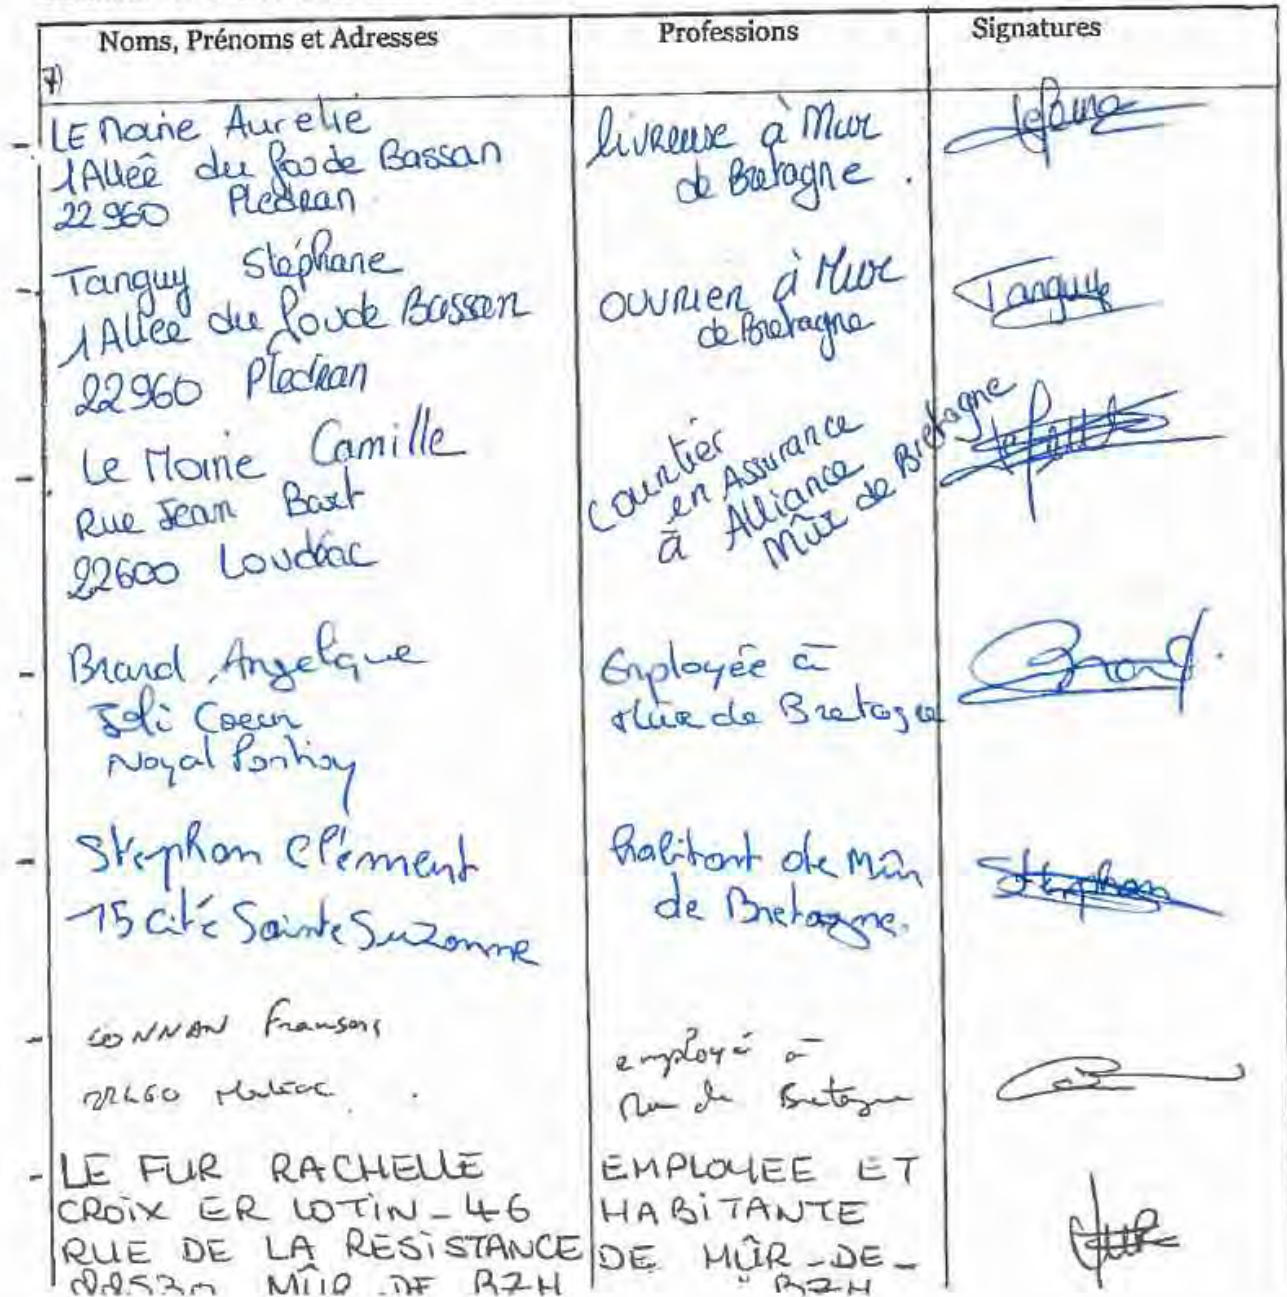 Noms, Prénoms et Adresses
Professions
Signatures
7)
LE Maine Aurelie
1 Allée du Bassan
22960 Pledran
livreuse à Mur
de Bretagne.
Tanguy Stéphane
1 Allée du Bassan
22960 Pledran
ouvrier à Mur
de Bretagne
Tanguy
Le Maine Camille
Rue Jean Bart
22600 Loudéac
Courtier
en Assurance
à Alliance
Mûr de Bretagne
Brand Angelique
Joli Coeur
Noyal Pontivy
Employée à
Mûr de Bretagne
Stephan Clément
15 cité Sainte Suzanne
habitant de Mûr
de Bretagne.
Stephan
CONNAN
employé à
Mur de Bretagne
LE FUR RACHELLE
CROIX ER LOTIN - 46
RUE DE LA RESISTANCE
22530 MÛR DE BZH
EMPLOYEE ET
HABITANTE
DE MÛR-DE-
BZH